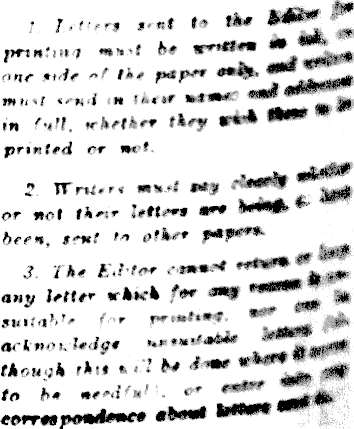 1. Letters sent to the Editor for
printing must be written in ink, on
one side of the paper only, and writers
must send in their names and addresses
in full, whether they wish them to be
printed or not.
2. Writers must say clearly whether
or not their letters are being, or have
been, sent to other papers.
3. The Editor cannot return or keep
any letter which for any reason is
suitable for printing, nor can he
acknowledge unsuitable letters
though this will be done where it seems
to be needful, or enter into any
correspondence about letters sent